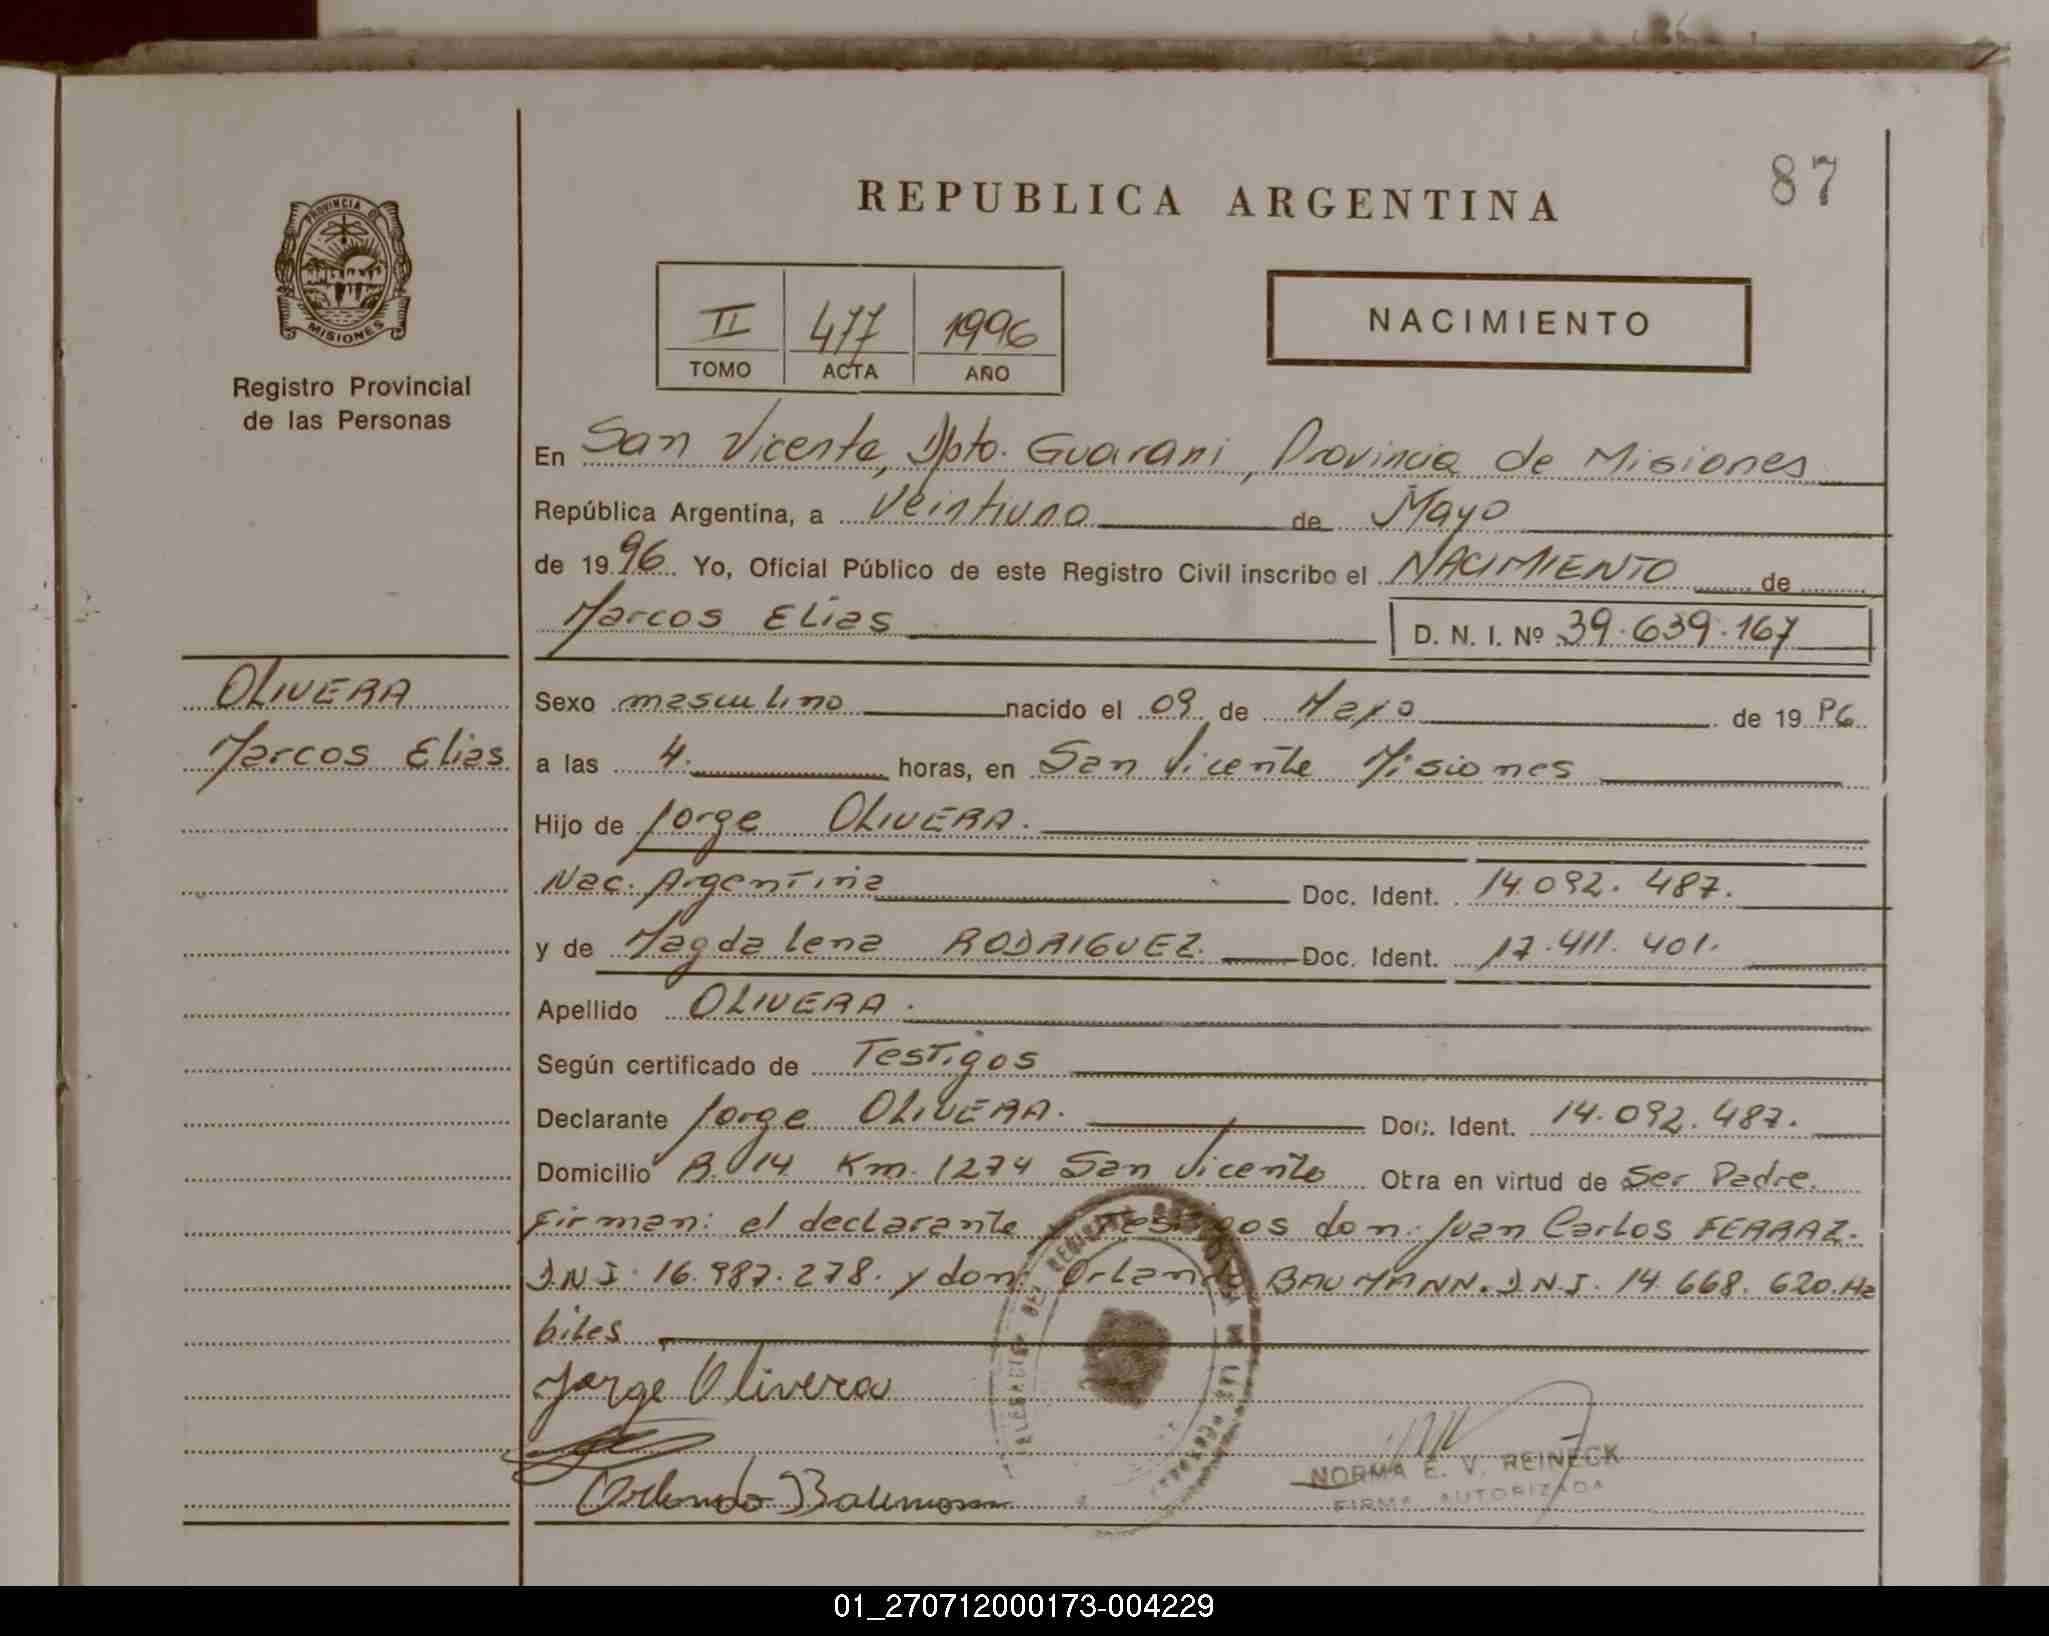 87
REPUBLICA ARGENTINA
PROVINCIA DE
MISIONES
Registro Provincial
de las Personas
II 477 1996
TOMO ACTA AÑO
NACIMIENTO
En San Vicente, Dpto. Guarani, Provincia de Misiones
República Argentina, a Veintiuno de Mayo
de 1996 Yo, Oficial Público de este Registro Civil inscribo el NACIMIENTO de
Marcos Elias D. N. I. Nº 39.639.167
OLIVERA
Marcos Elias
Sexo masculino nacido el 09 de Mayo de 1996
a las 4. horas, en San Vicente Misiones
Hijo de Jorge OLIVERA.
Nac. Argentina Doc. Ident. 14.092.487.
y de Magdalena RODRIGUEZ. Doc. Ident. 17.411.401.
Apellido OLIVERA.
Según certificado de Testigos
Declarante Jorge OLIVERA. Doc. Ident. 14.092.487.
Domicilio R. 14 Km. 1274 San Vicente Obra en virtud de Ser Padre.
Firman: el declarante y Testigos don: Juan Carlos FERRAZ.
D.N.I. 16.987.278. y don: Orlando BAUMANN. D.N.I. 14.668.620. Ha
biles
Jorge Olivera
Orlando Baumann
NORMA E. V. REINECK
FIRMA AUTORIZADA
01_270712000173-004229